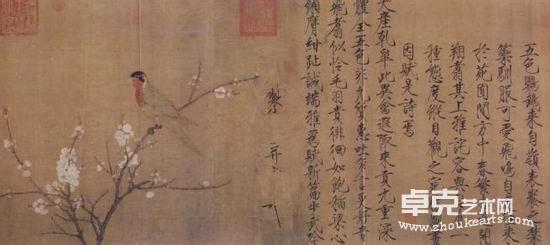 五色鸚鵡來自嶺表養之禁
籞馴服可愛飛鳴自適往來
於苑囿間方中春繁杏遍開
翔翥其上雅詫容與自有一
種態度縱目觀之宛
因賦是詩焉
天產乾皋此異禽遐陬來貢九重深
體全五色非凡質惠吐多言更好音
飛翥似憐毛羽貴徘徊如飽稻粱心
緗膺紺趾誠端雅為賦新篇步武吟
卓克艺术网
www.zhoukearts.com